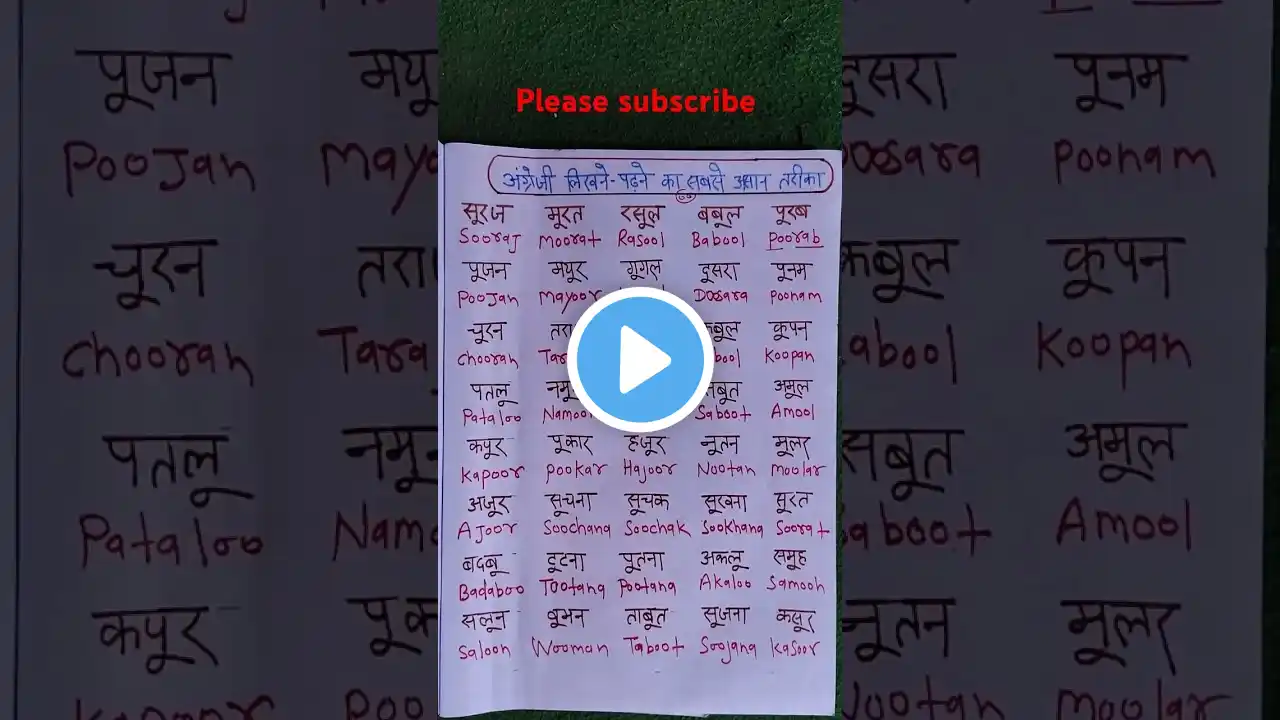 Please subscribe
अंग्रेजी लिखने-पढ़ने का सबसे आसान तरीका
सूरज मूरत रसूल बबूल पूरब
Sooraj Moorat Rasool Babool Poorab
पूजन मयूर गूगल दूसरा पूनम
Poojan Mayoor Doosara Poonam
चूरन कूपन
Chooran Koopan
पतलू अमूल
Pataloo Saboot Amool
कपूर पूकार हजूर नूतन मूलर
Kapoor Pookar Hajoor Nootan Moolar
अजूर सूचना सूचक सूखना सूरत
Ajoor Soochana Soochak Sookhana Soorat
बदबू टूटना पूतना अकलू समूह
Badaboo Tootana Pootana Akaloo Samooh
सलून वूमन ताबूत सूजना कसूर
Saloon Wooman Taboot Soojana Kasoor